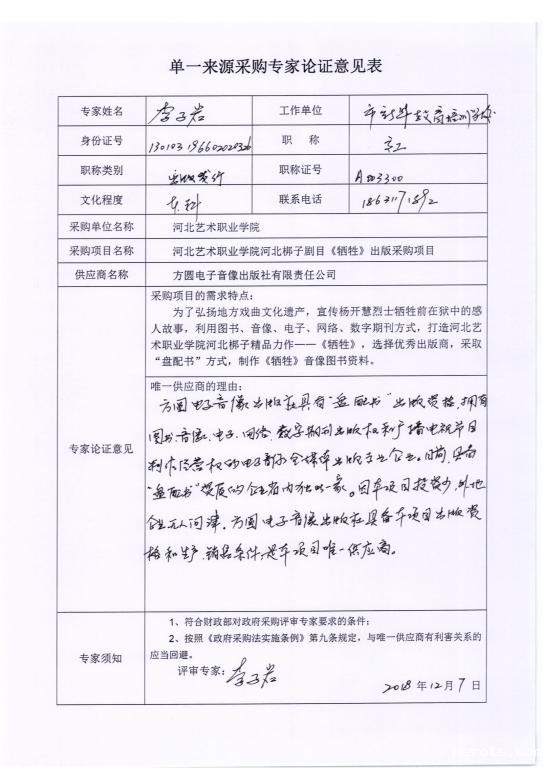 单一来源采购专家论证意见表
专家姓名 李子岩 工作单位 市新华教育培训学校
身份证号 130103196602020326 职 称
职称类别 出版发行 职称证号 A003300
文化程度 本科 联系电话 18631171892
采购单位名称 河北艺术职业学院
采购项目名称 河北艺术职业学院河北梆子剧目《牺牲》出版采购项目
供应商名称 方圆电子音像出版社有限责任公司
专家论证意见
采购项目的需求特点:
为了弘扬地方戏曲文化遗产,宣传杨开慧烈士牺牲前在狱中的感
人故事,利用图书、音像、电子、网络、数字期刊方式,打造河北艺
术职业学院河北梆子精品力作——《牺牲》,选择优秀出版商,采取
“盘配书”方式,制作《牺牲》音像图书资料。
唯一供应商的理由:
方圆电子音像出版社具有“盘配书”出版资格,拥有
图书、音像、电子、网络、数字期刊出版权和广播电视节目
制作经营权的电子音像全媒体出版专业企业。目前,具有
“盘配书”资质的企业省内独此一家。因本项目投资少,外地
企业无人问津。方圆电子音像出版社具备本项目出版资
格和生产、销售条件,是本项目唯一供应商。
专家须知
1、符合财政部对政府采购评审专家要求的条件;
2、按照《政府采购法实施条例》第九条规定,与唯一供应商有利害关系的
应当回避。
评审专家: 李子岩
2018 年 12 月 7 日